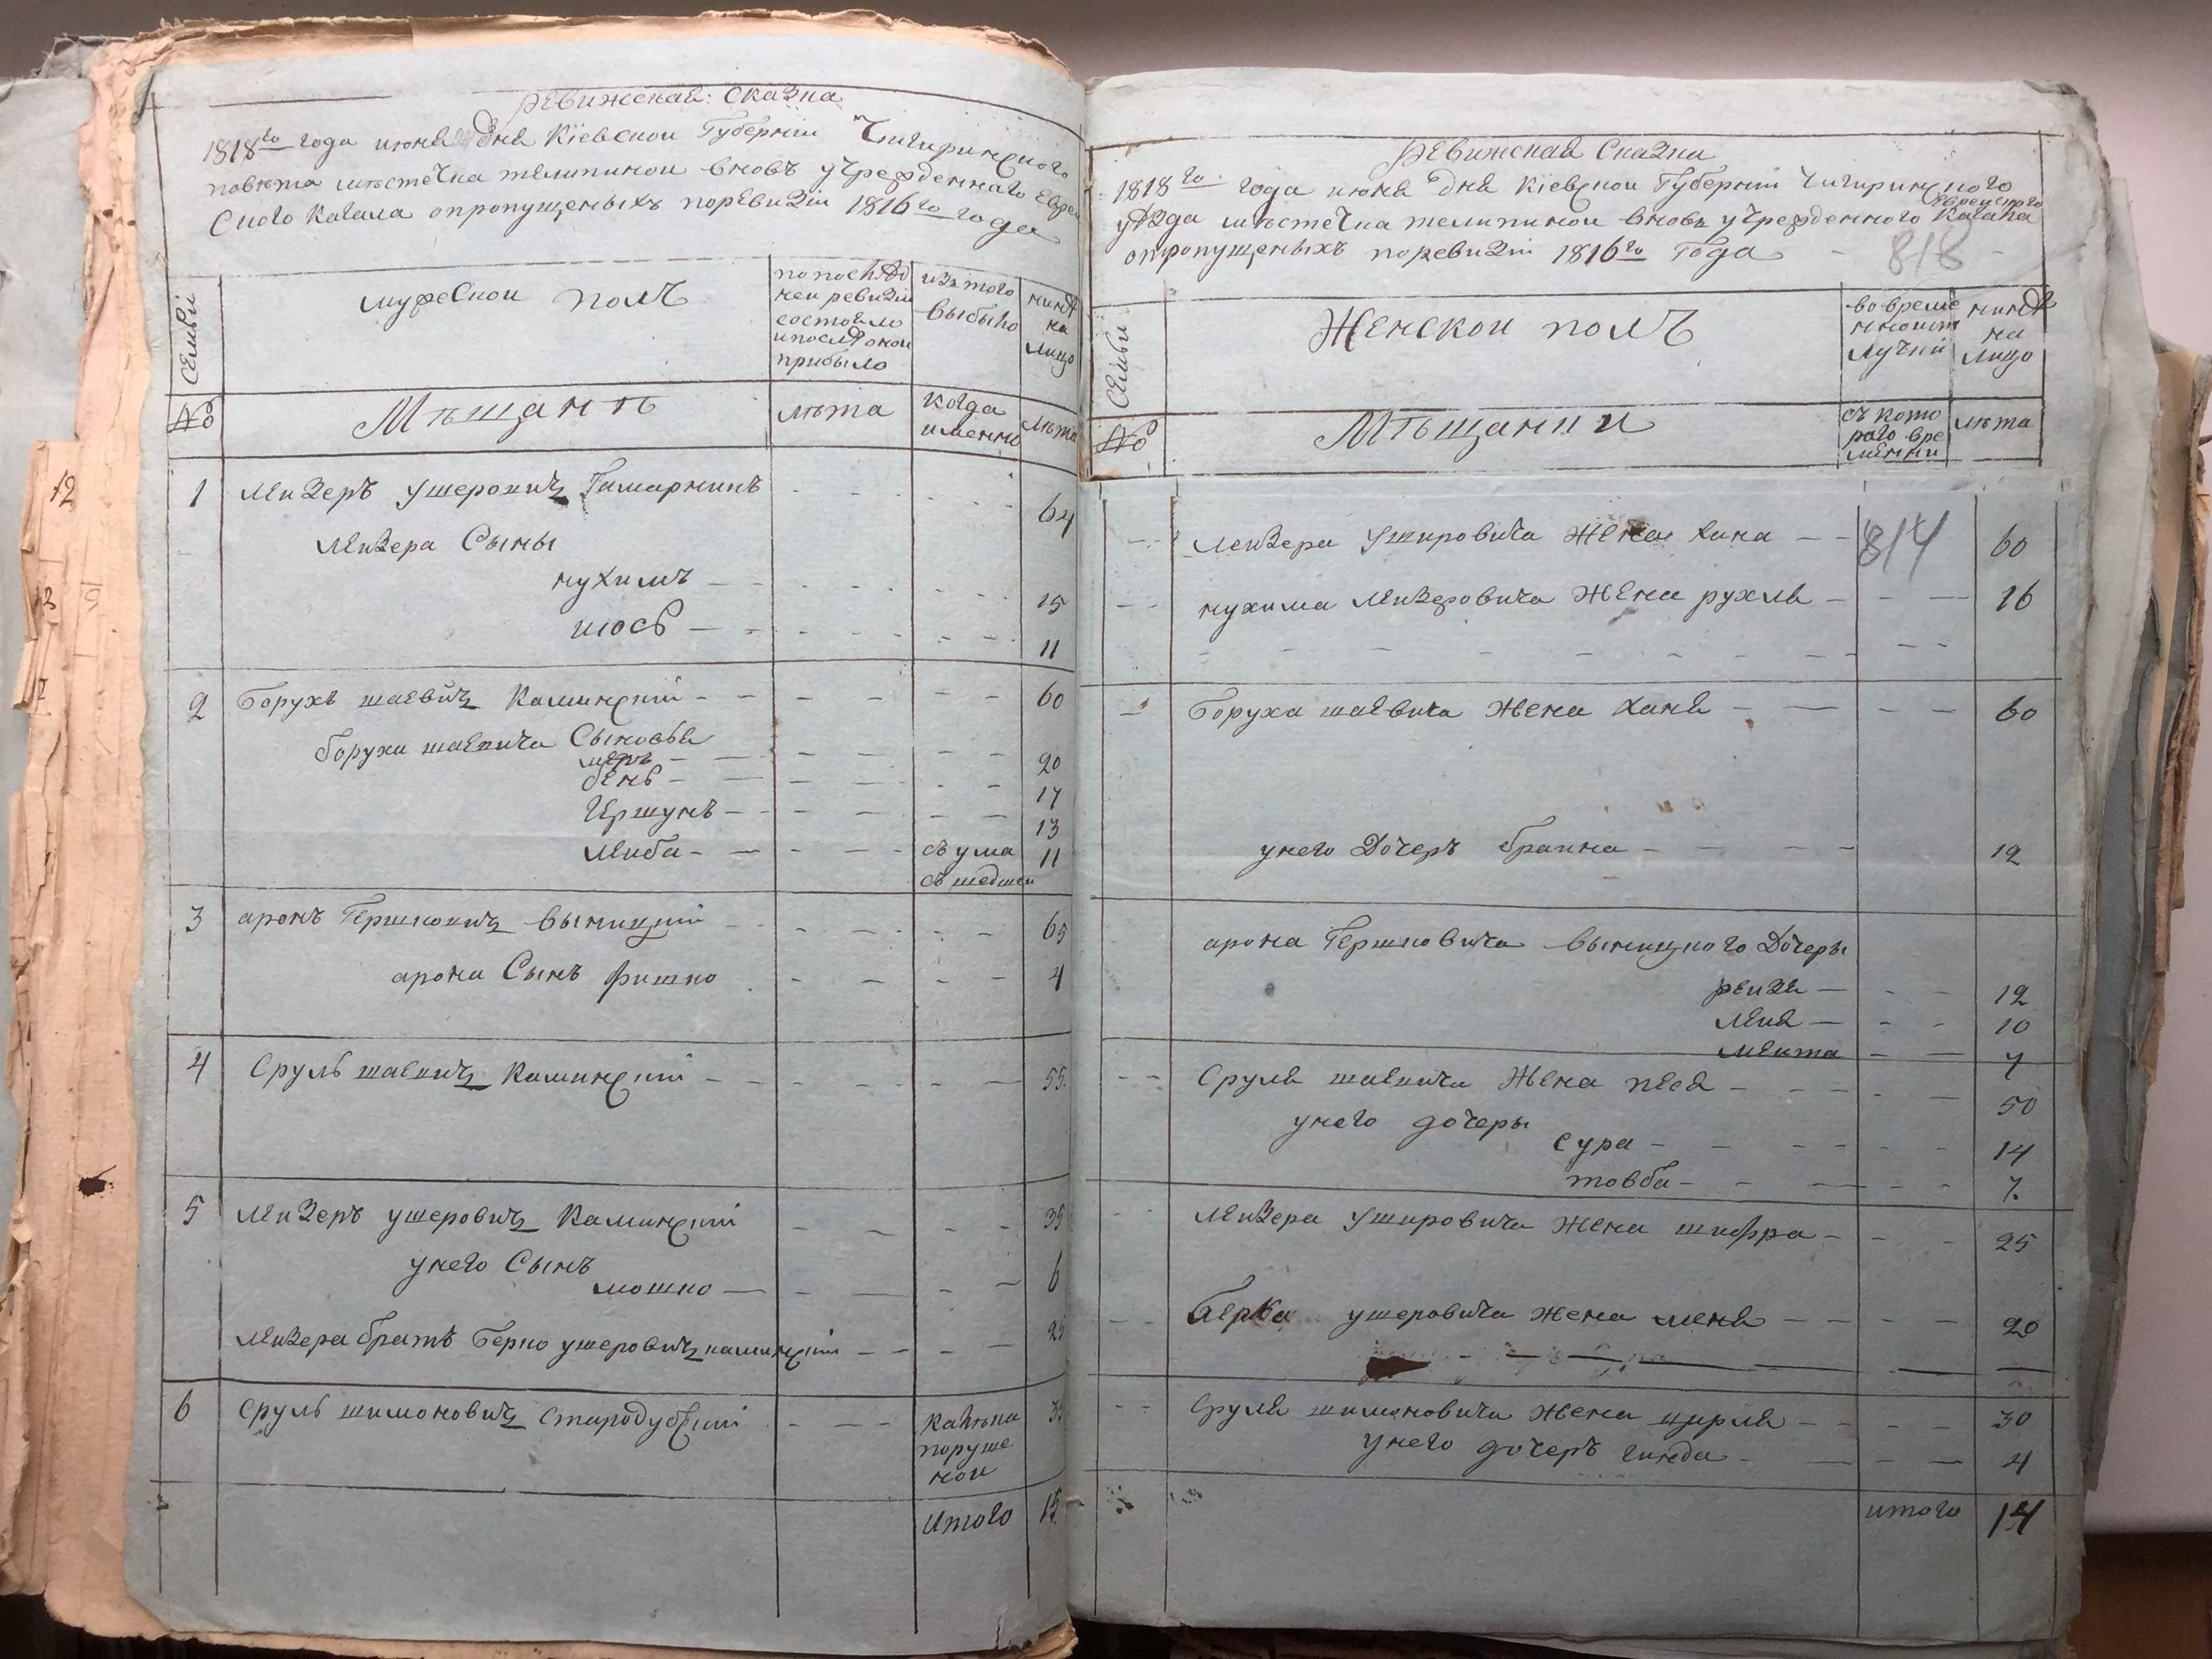 Ревижская: Сказка
1818го года июня дня Кіевской Губерніи Чигиринского
повѣта мѣстечка телипиной вновъ учрежденнаго Еврей
ского кагала опропущеныхъ поревизіи 1816го года
Семьи
мужескои полъ
попослѣд
ней ревизіи
состояло
ипослѣ оной
прибыло
изътого
выбыло
нинѣ
на
лицо
№
Мѣщанѣ
лѣта
когда
именно
лѣта
1 лейзеръ ушеровичъ Гамарникъ 64
лейзера Сыны
нухимъ 15
иось 11
2 борухъ шаевичъ Каминскій 60
боруха шаевича Сыновья
меръ 20
бень 17
Гершунъ 13
лейба съ ума 11
съшедшей
3 аронъ Гершковичъ выницкій 65
арона Сынъ фишко 4
4 Сруль шаевичъ Каминскій 55.
5 лейзеръ ушеровичъ Каминскій 35
унего Сынъ
мошко 6
лейзера братъ берко ушеровичъ каминскій 25
6 Сруль шимоновичъ Стародубскій калѣка
поруше
ной
итого 15
Ревижская Сказка
1818го года июня дня Кіевской Губерніи Чигиринского
уѣзда мѣстечка телипиной вновь учрежденного Еврейского Кагала
опропущеныхъ поревизіи 1816го Года
818
Семьи
Женскои полъ
вовреме
нной от
лучки
нинѣ
на
лицо
№
Мѣщанки
съ кото
раго вре
менни
лѣта
лейзера Ушировича Жена хана 814 60
нухима лейзеровича Жена рухля 16
боруха шаевича Жена ханя 60
унего Дочеръ браина 12
арона Гершковича выницкого Дочеры
рейзя 12
лея 10
мейта 7
Сруля шаевича Жена песя 50
унего дочеры
сура 14
товба 7.
лейзера Ушировича Жена шифра 25
берка ушеровича жена меня 20
Сруля шимоновича жена цирля 30
унего дочеръ гинда 4
итого 14
12